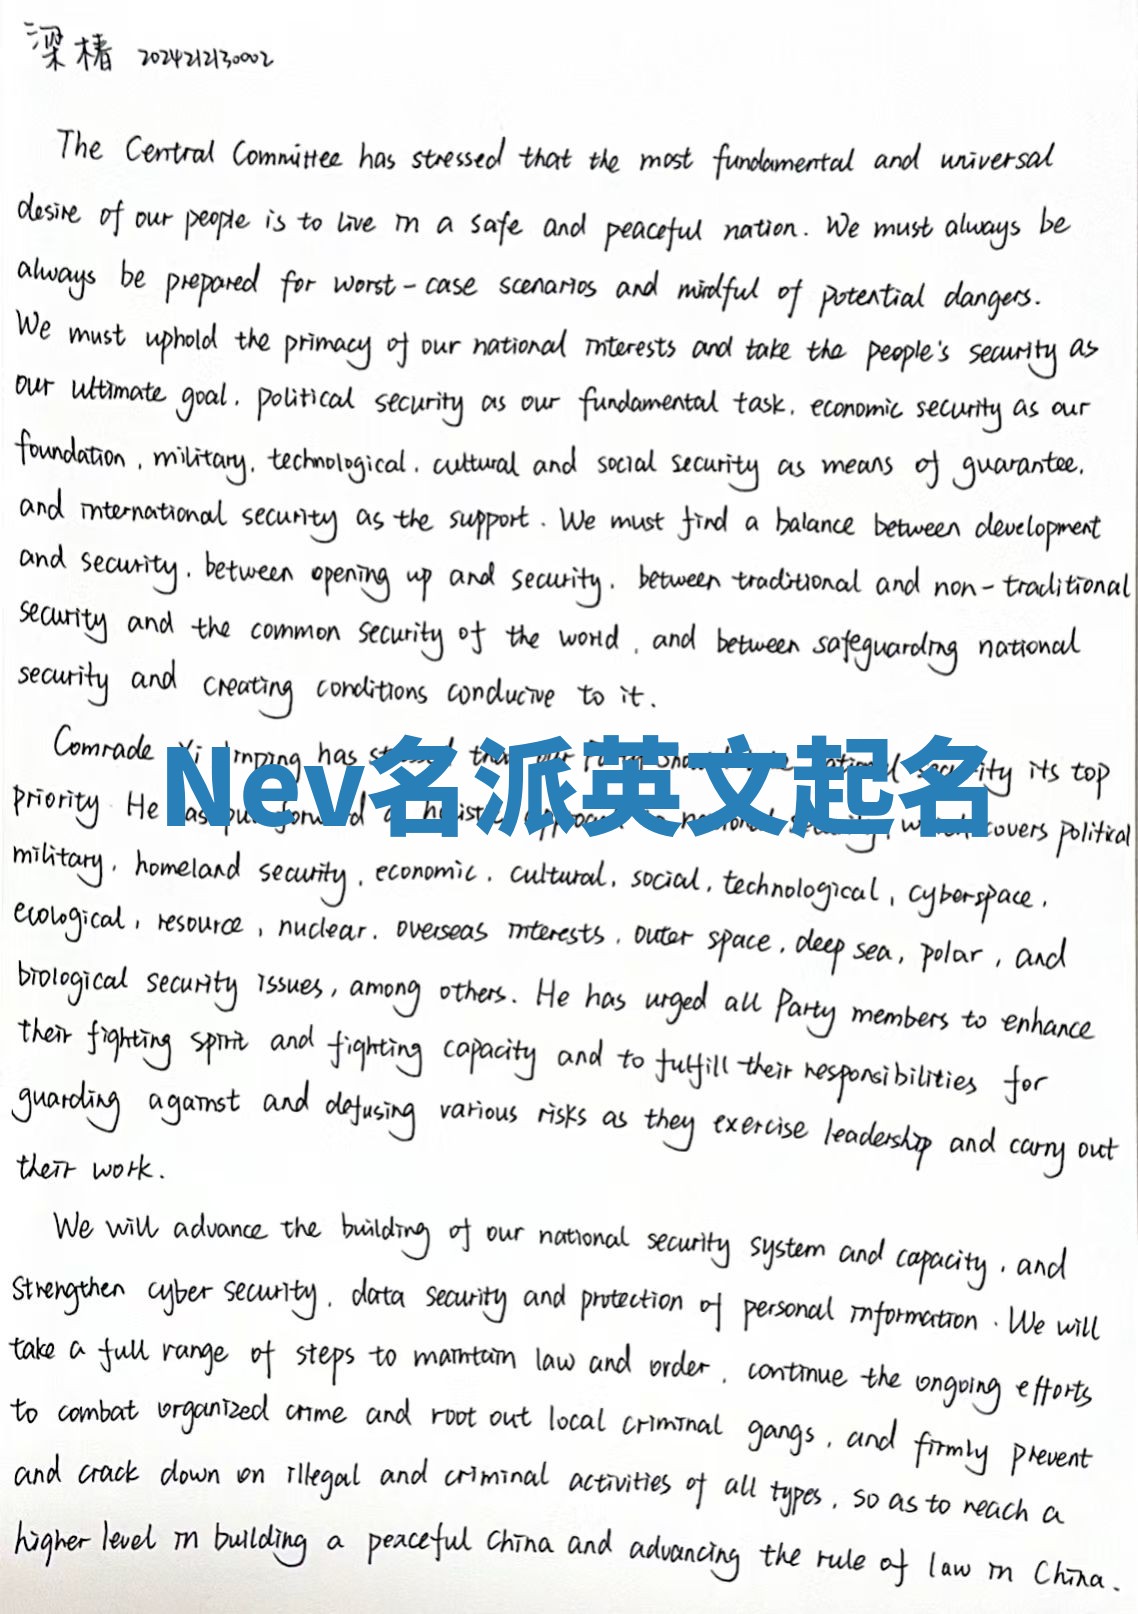 梁椿 2024212130002
The Central Committee has stressed that the most fundamental and universal
desire of our people is to live in a safe and peaceful nation. We must always be
always be prepared for worst-case scenarios and mindful of potential dangers.
We must uphold the primacy of our national interests and take the people's security as
our ultimate goal, political security as our fundamental task, economic security as our
foundation, military, technological, cultural and social security as means of guarantee,
and international security as the support. We must find a balance between development
and security, between opening up and security, between traditional and non-traditional
security and the common security of the world, and between safeguarding national
security and creating conditions conducive to it.
Comrade Xi Jinping has that our Party security its top
Nev名派英文起名
priority. He has put forward a holistic approach to national security, which covers political
military, homeland security, economic, cultural, social, technological, cyberspace,
ecological, resource, nuclear, overseas interests, outer space, deep sea, polar, and
biological security issues, among others. He has urged all Party members to enhance
their fighting spirit and fighting capacity and to fulfill their responsibilities for
guarding against and defusing various risks as they exercise leadership and carry out
their work.
We will advance the building of our national security system and capacity, and
strengthen cyber security, data security and protection of personal information. We will
take a full range of steps to maintain law and order, continue the ongoing efforts
to combat organized crime and root out local criminal gangs, and firmly prevent
and crack down on illegal and criminal activities of all types, so as to reach a
higher level in building a peaceful China and advancing the rule of law in China.